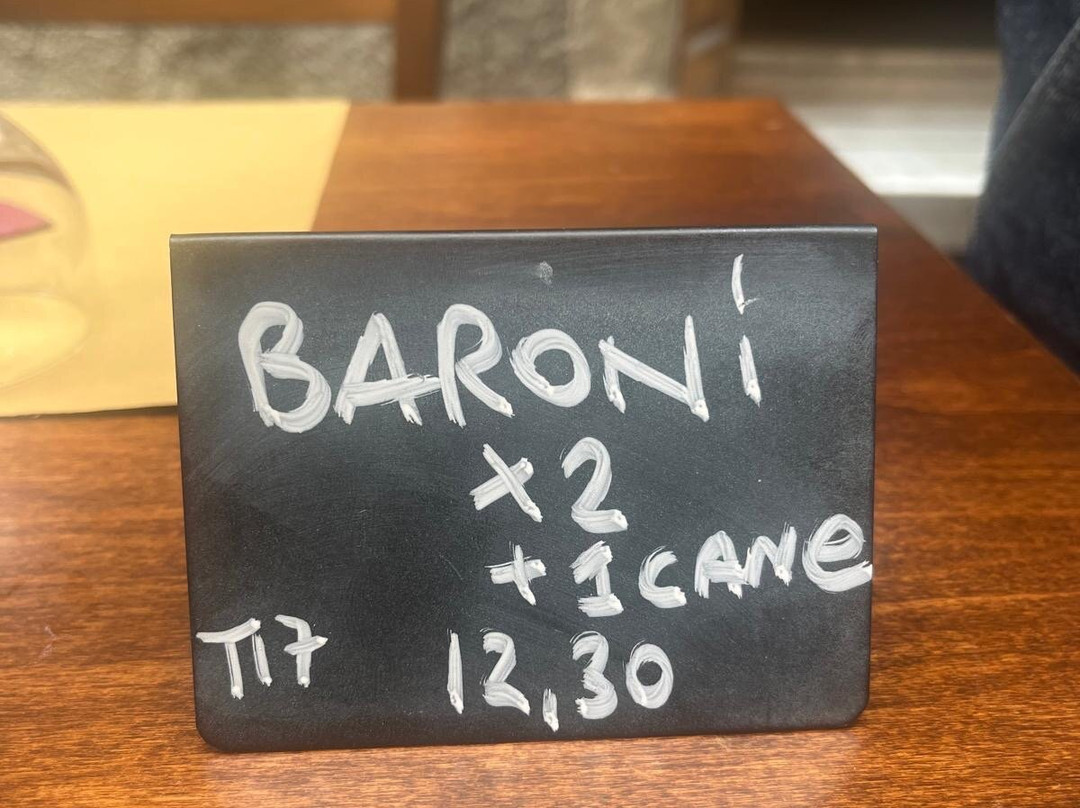 BARONi
x2
+1 CANe
T17 12,30